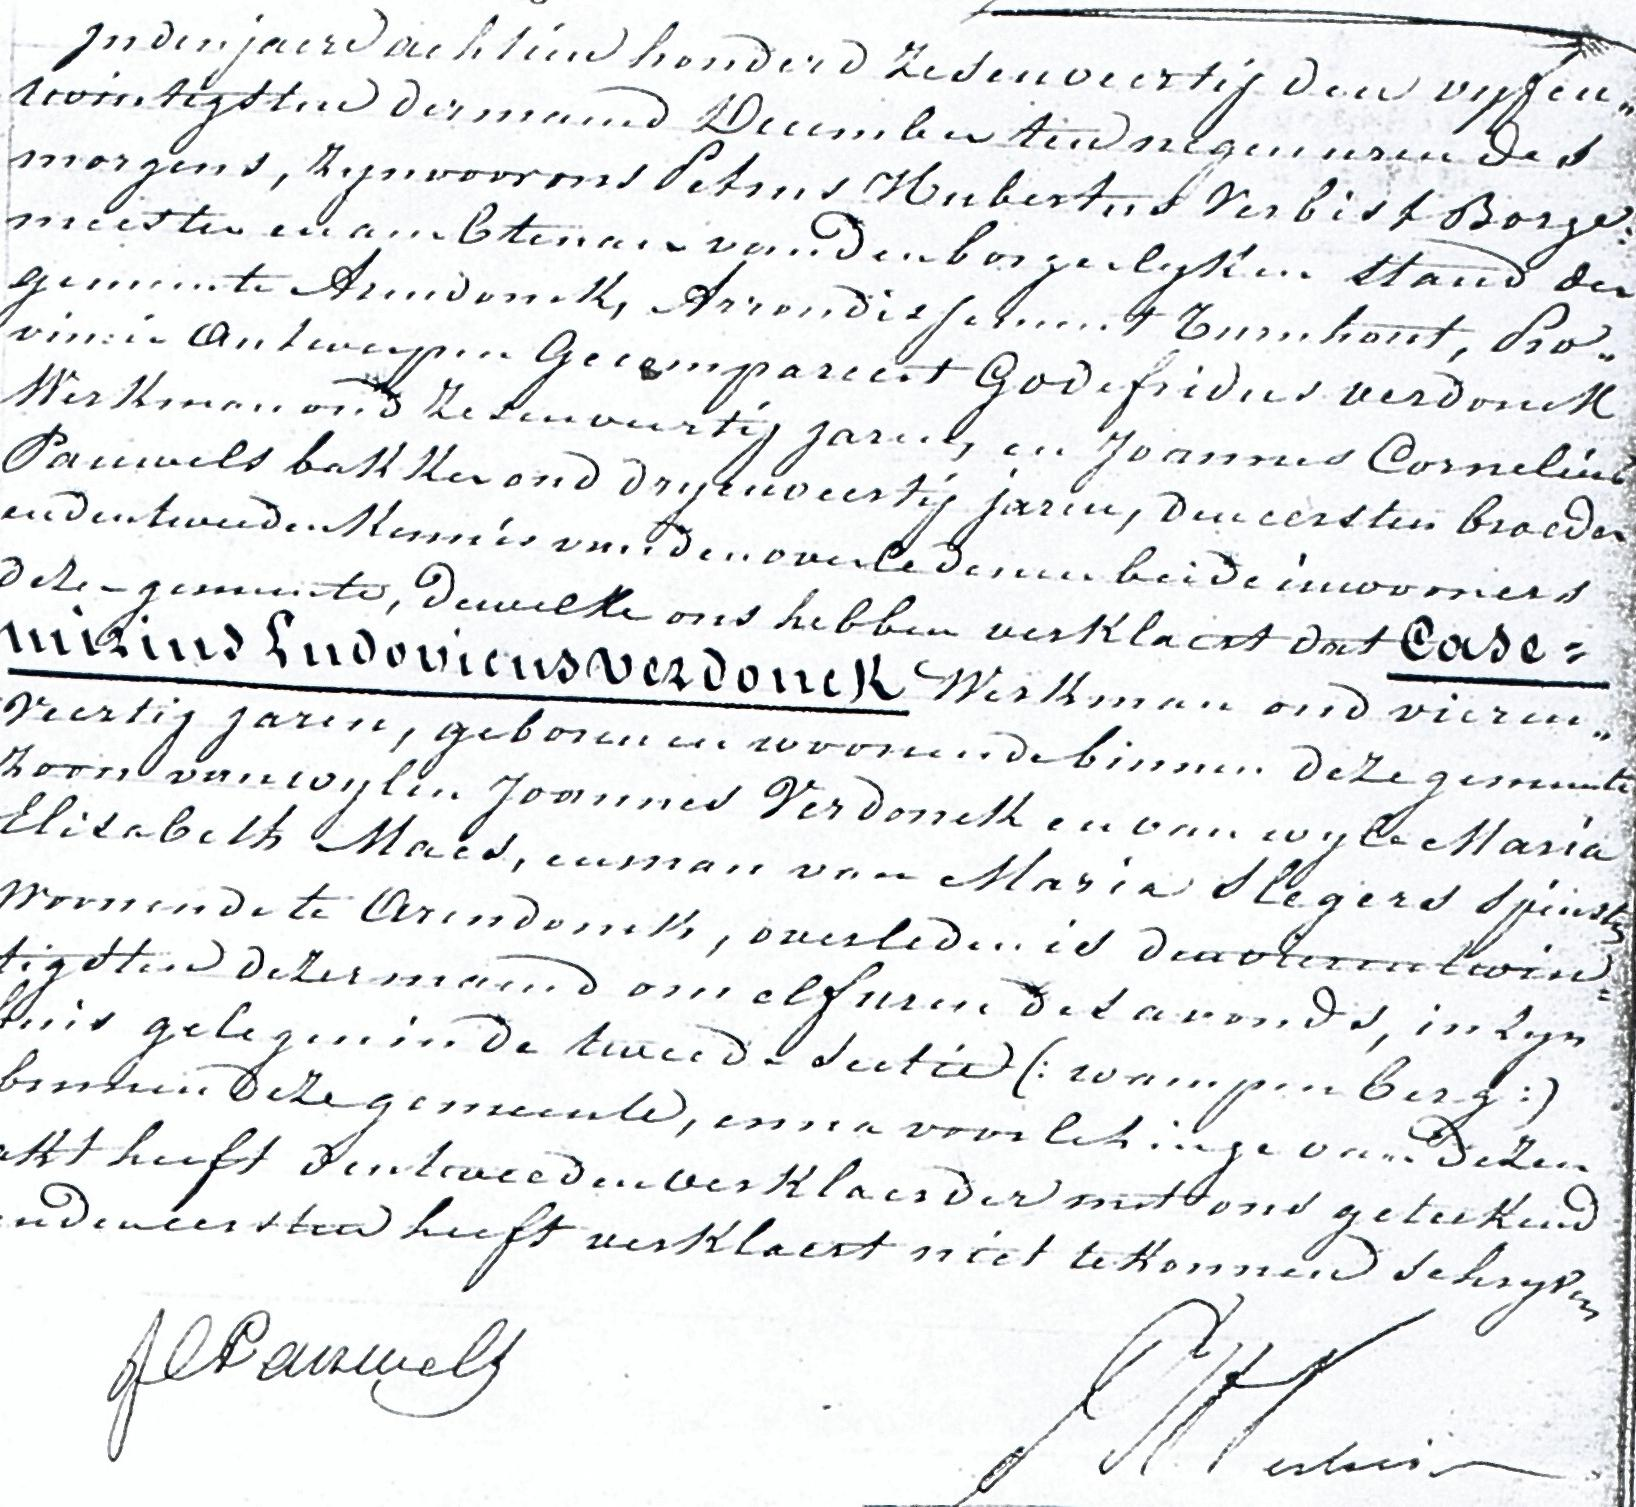 In den jaere achtien honderd zesenveertig den vyfen„
twintigsten der maend December ten negen uren des
morgens, zyn voor ons Petrus Hubertus Verbist Borge:
meester en ambtenaer van den borgerlyken stand der
gemeente Arendonck, Arrondissement Turnhout, Pro„
vincie Antwerpen Gecompareert Godefridus verdonck
Werkman oud zesenveertig jaren, en Joannes Cornelius
Pauwels bakker oud dryenveertig jaren, den eersten broeder
en den tweeden kennis van den overledenen beide inwooners
dezer gemeente, dewelke ons hebben verklaert dat Case=
mirius Ludovicus Verdonck Werkman oud vieren„
Veertig jaren, geboren en woonende binnen deze gemeente
Zoon van wylen Joannes Verdonck en van wyle Maria
Elisabeth Maes, en man van Maria Slegers spinster
Woonende te Arendonck, overleden is den vierentwin=
tigsten dezer maend om elf uren des avonds, in zyn
huis gelegen in de tweede sectie (: wampenberg :)
binnen deze gemeente, en na voorlezinge van dezen
akt heeft den tweeden verklaerder met ons geteekend
en den eersten heeft verklaert niet te konnen schryven
J C Pauwels
P H Verbist